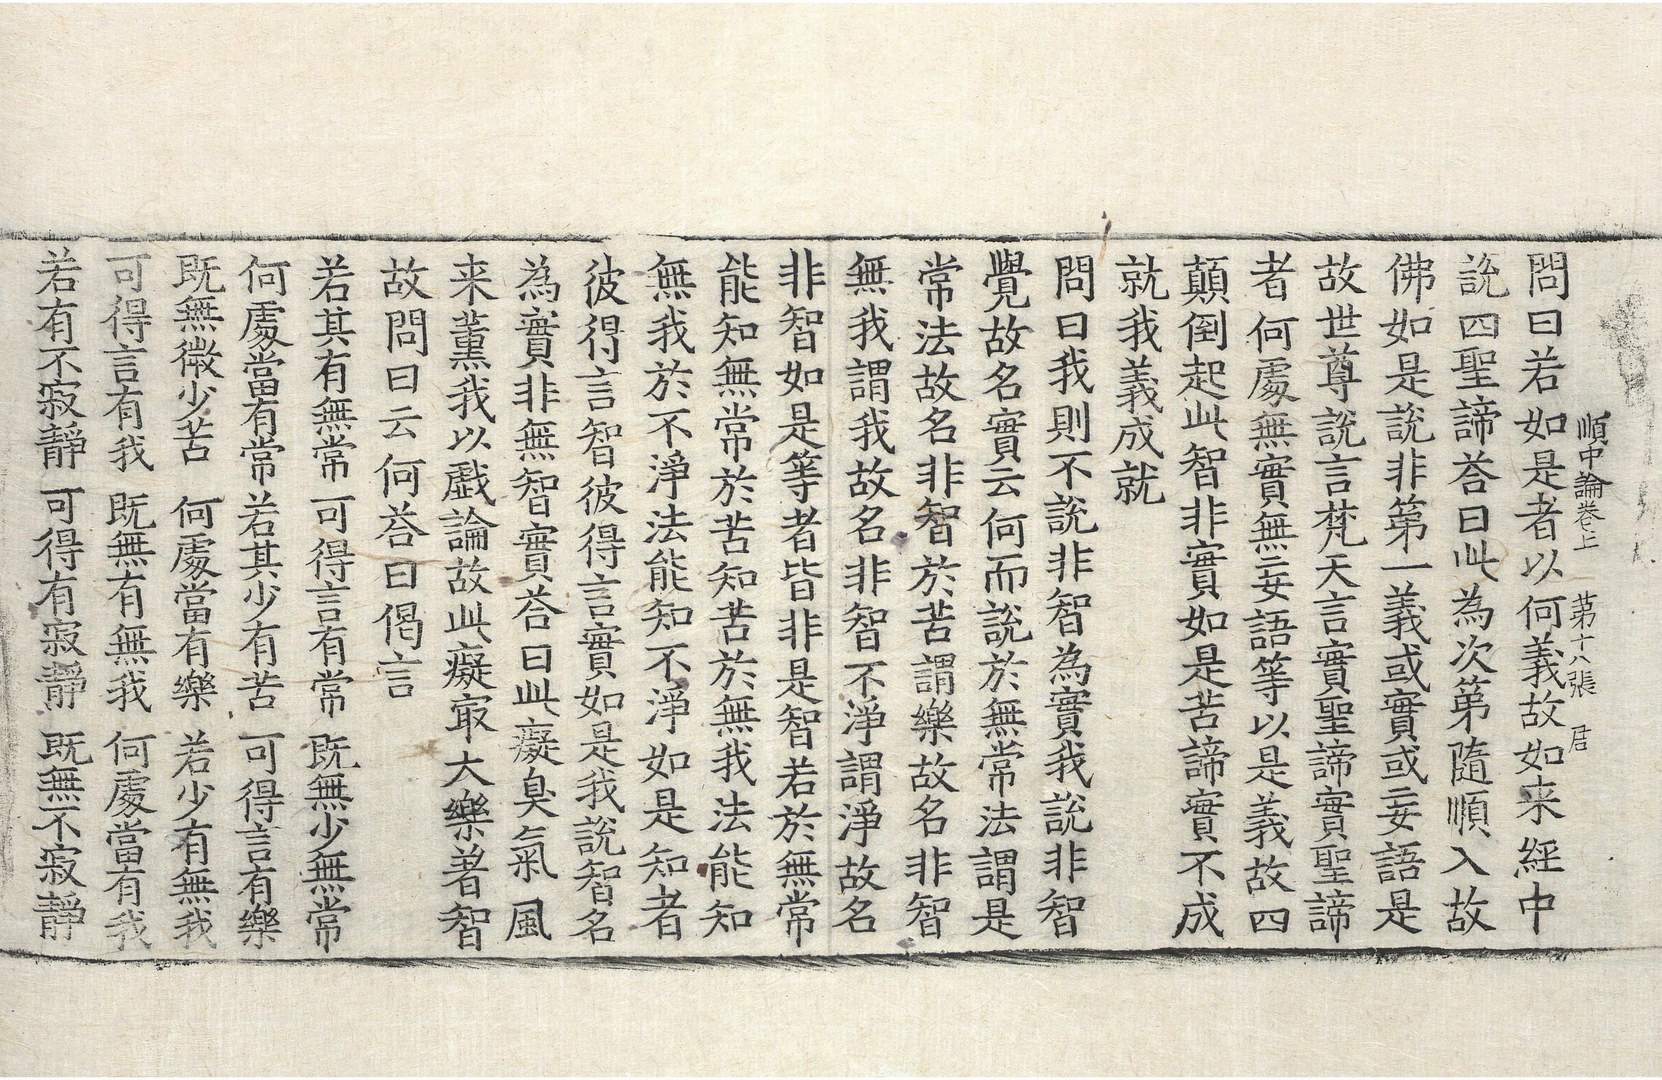 順中論卷上 第十八張 𡱈
問曰若如是者以何義故如来經中
説四聖諦荅曰此為次第隨順入故
佛如是説非第一義或實或妄語是
故世尊説言梵天言實聖諦實聖諦
者何處無實無妄語等以是義故四
顛倒起此智非實如是苦諦實不成
就我義成就
問曰我則不説非智為實我説非智
覺故名實云何而説於無常法謂是
常法故名非智於苦謂樂故名非智
無我謂我故名非智不淨謂淨故名
非智如是等者皆非是智若於無常
能知無常於苦知苦於無我法能知
無我於不淨法能知不淨如是知者
彼得言智彼得言實如是我説智名
為實非無智實荅曰此癡臭氣風
来薫我以戲論故此癡㝡大樂著智
故問曰云何荅曰偈言
若其有無常 可得言有常 既無少無常
何處當有常 若其少有苦 可得言有樂
既無微少苦 何處當有樂 若少有無我
可得言有我 既無有無我 何處當有我
若有不寂靜 可得有寂靜 既無不寂靜